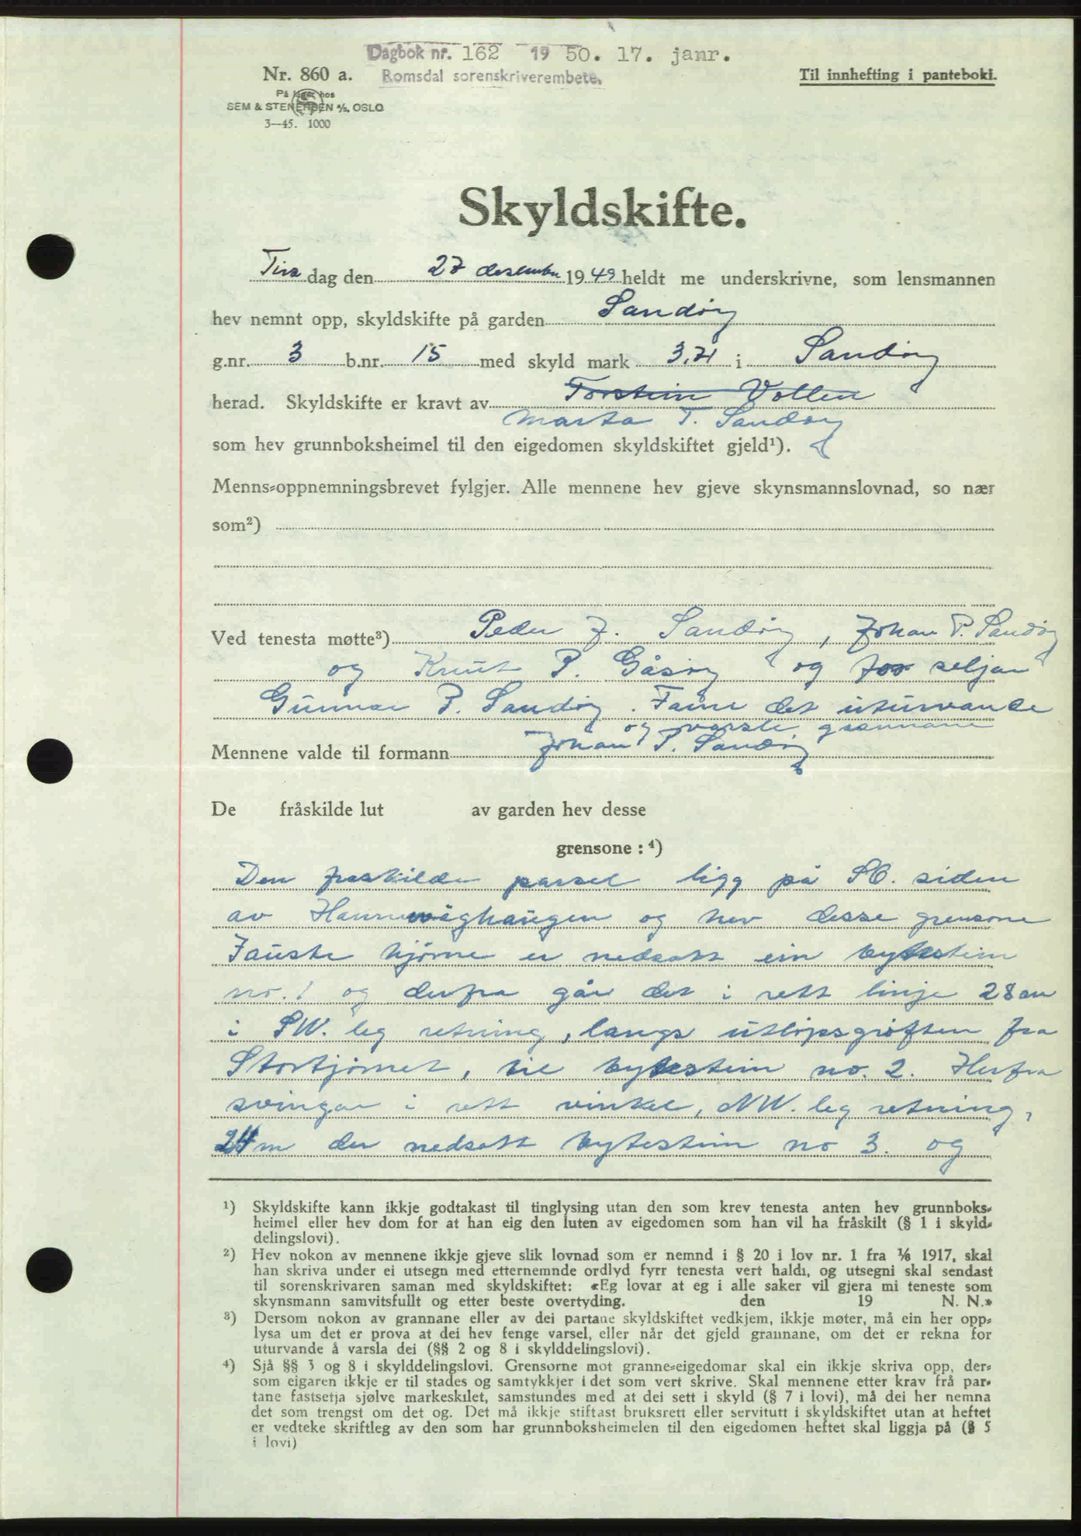 Dagbok nr. 162 19 50. 17. janr.
Romsdal sorenskriverembete.
Nr. 860 a.
Til innhefting i panteboki.
På lager hos
SEM & STENERSEN A/S, OSLO
3—45. 1000
Skyldskifte.
Tirs dag den 27 desember 19 49 heldt me underskrivne, som lensmannen
hev nemnt opp, skyldskifte på garden Sandøy
g.nr. 3 b.nr. 15 med skyld mark 3,21 i Sandøy
herad. Skyldskifte er kravt av Torstein Vollen
Marta T. Sandøy
som hev grunnboksheimel til den eigedomen skyldskiftet gjeld¹).
Menns-oppnemningsbrevet fylgjer. Alle mennene hev gjeve skynsmannslovnad, so nær
som²)
Ved tenesta møtte³) Peder J. Sandøy, Johan P. Sandøy
og Knut P. Gåsøy og for seljar
Gunnar P. Sandøy. Fann det uturvande
og varsle grannane
Mennene valde til formann Johan P. Sandøy
De fråskilde lut av garden hev desse
grensone : ⁴)
Den fraskilde parsel ligg på SO. siden
av Hamnevåghaugen og hev desse grensone
Fauste hjørne er nedsatt ein bytestein
no. 1 og derfra går det i rett linje 28 m
i SW. leg retning, langs utløpsgrøften fra
Stortjørnet, til bytestein no. 2. Herfra
svingar i rett vinkel, NW. leg retning,
24 m der nedsatt bytestein no 3. og
¹) Skyldskifte kann ikkje godtakast til tinglysing utan den som krev tenesta anten hev grunnboks-
heimel eller hev dom for at han eig den luten av eigedomen som han vil ha fråskilt (§ 1 i skyld-
delingslovi).
²) Hev nokon av mennene ikkje gjeve slik lovnad som er nemnd i § 20 i lov nr. 1 fra 1/6 1917, skal
han skriva under ei utsegn med etternemnde ordlyd fyrr tenesta vert haldi, og utsegni skal sendast
til sorenskrivaren saman med skyldskiftet: «Eg lovar at eg i alle saker vil gjera mi teneste som
skynsmann samvitsfullt og etter beste overtyding. den 19 N. N.»
³) Dersom nokon av grannane eller av dei partane skyldskiftet vedkjem, ikkje møter, må ein her opp-
lysa um det er prova at dei hev fenge varsel, eller når det gjeld grannane, om det er rekna for
uturvande å varsla dei (§§ 2 og 8 i skylddelingslovi).
⁴) Sjå §§ 3 og 8 i skylddelingslovi. Grensorne mot granne-eigedomar skal ein ikkje skriva opp, der-
som eigaren ikkje er til stades og samtykkjer i det som vert skrive. Skal mennene etter krav frå par-
tane fastsetja sjølve markeskilet, samstundes med at dei sett i skyld (§ 7 i lovi), må dei her nemna
det som trengst om det og. Det må ikkje stiftast bruksrett eller servitutt i skyldskiftet utan at heftet
er vedteke skriftleg av den som har grunnboksheimelen til den eigedomen heftet skal liggja på (§ 5
i lovi)